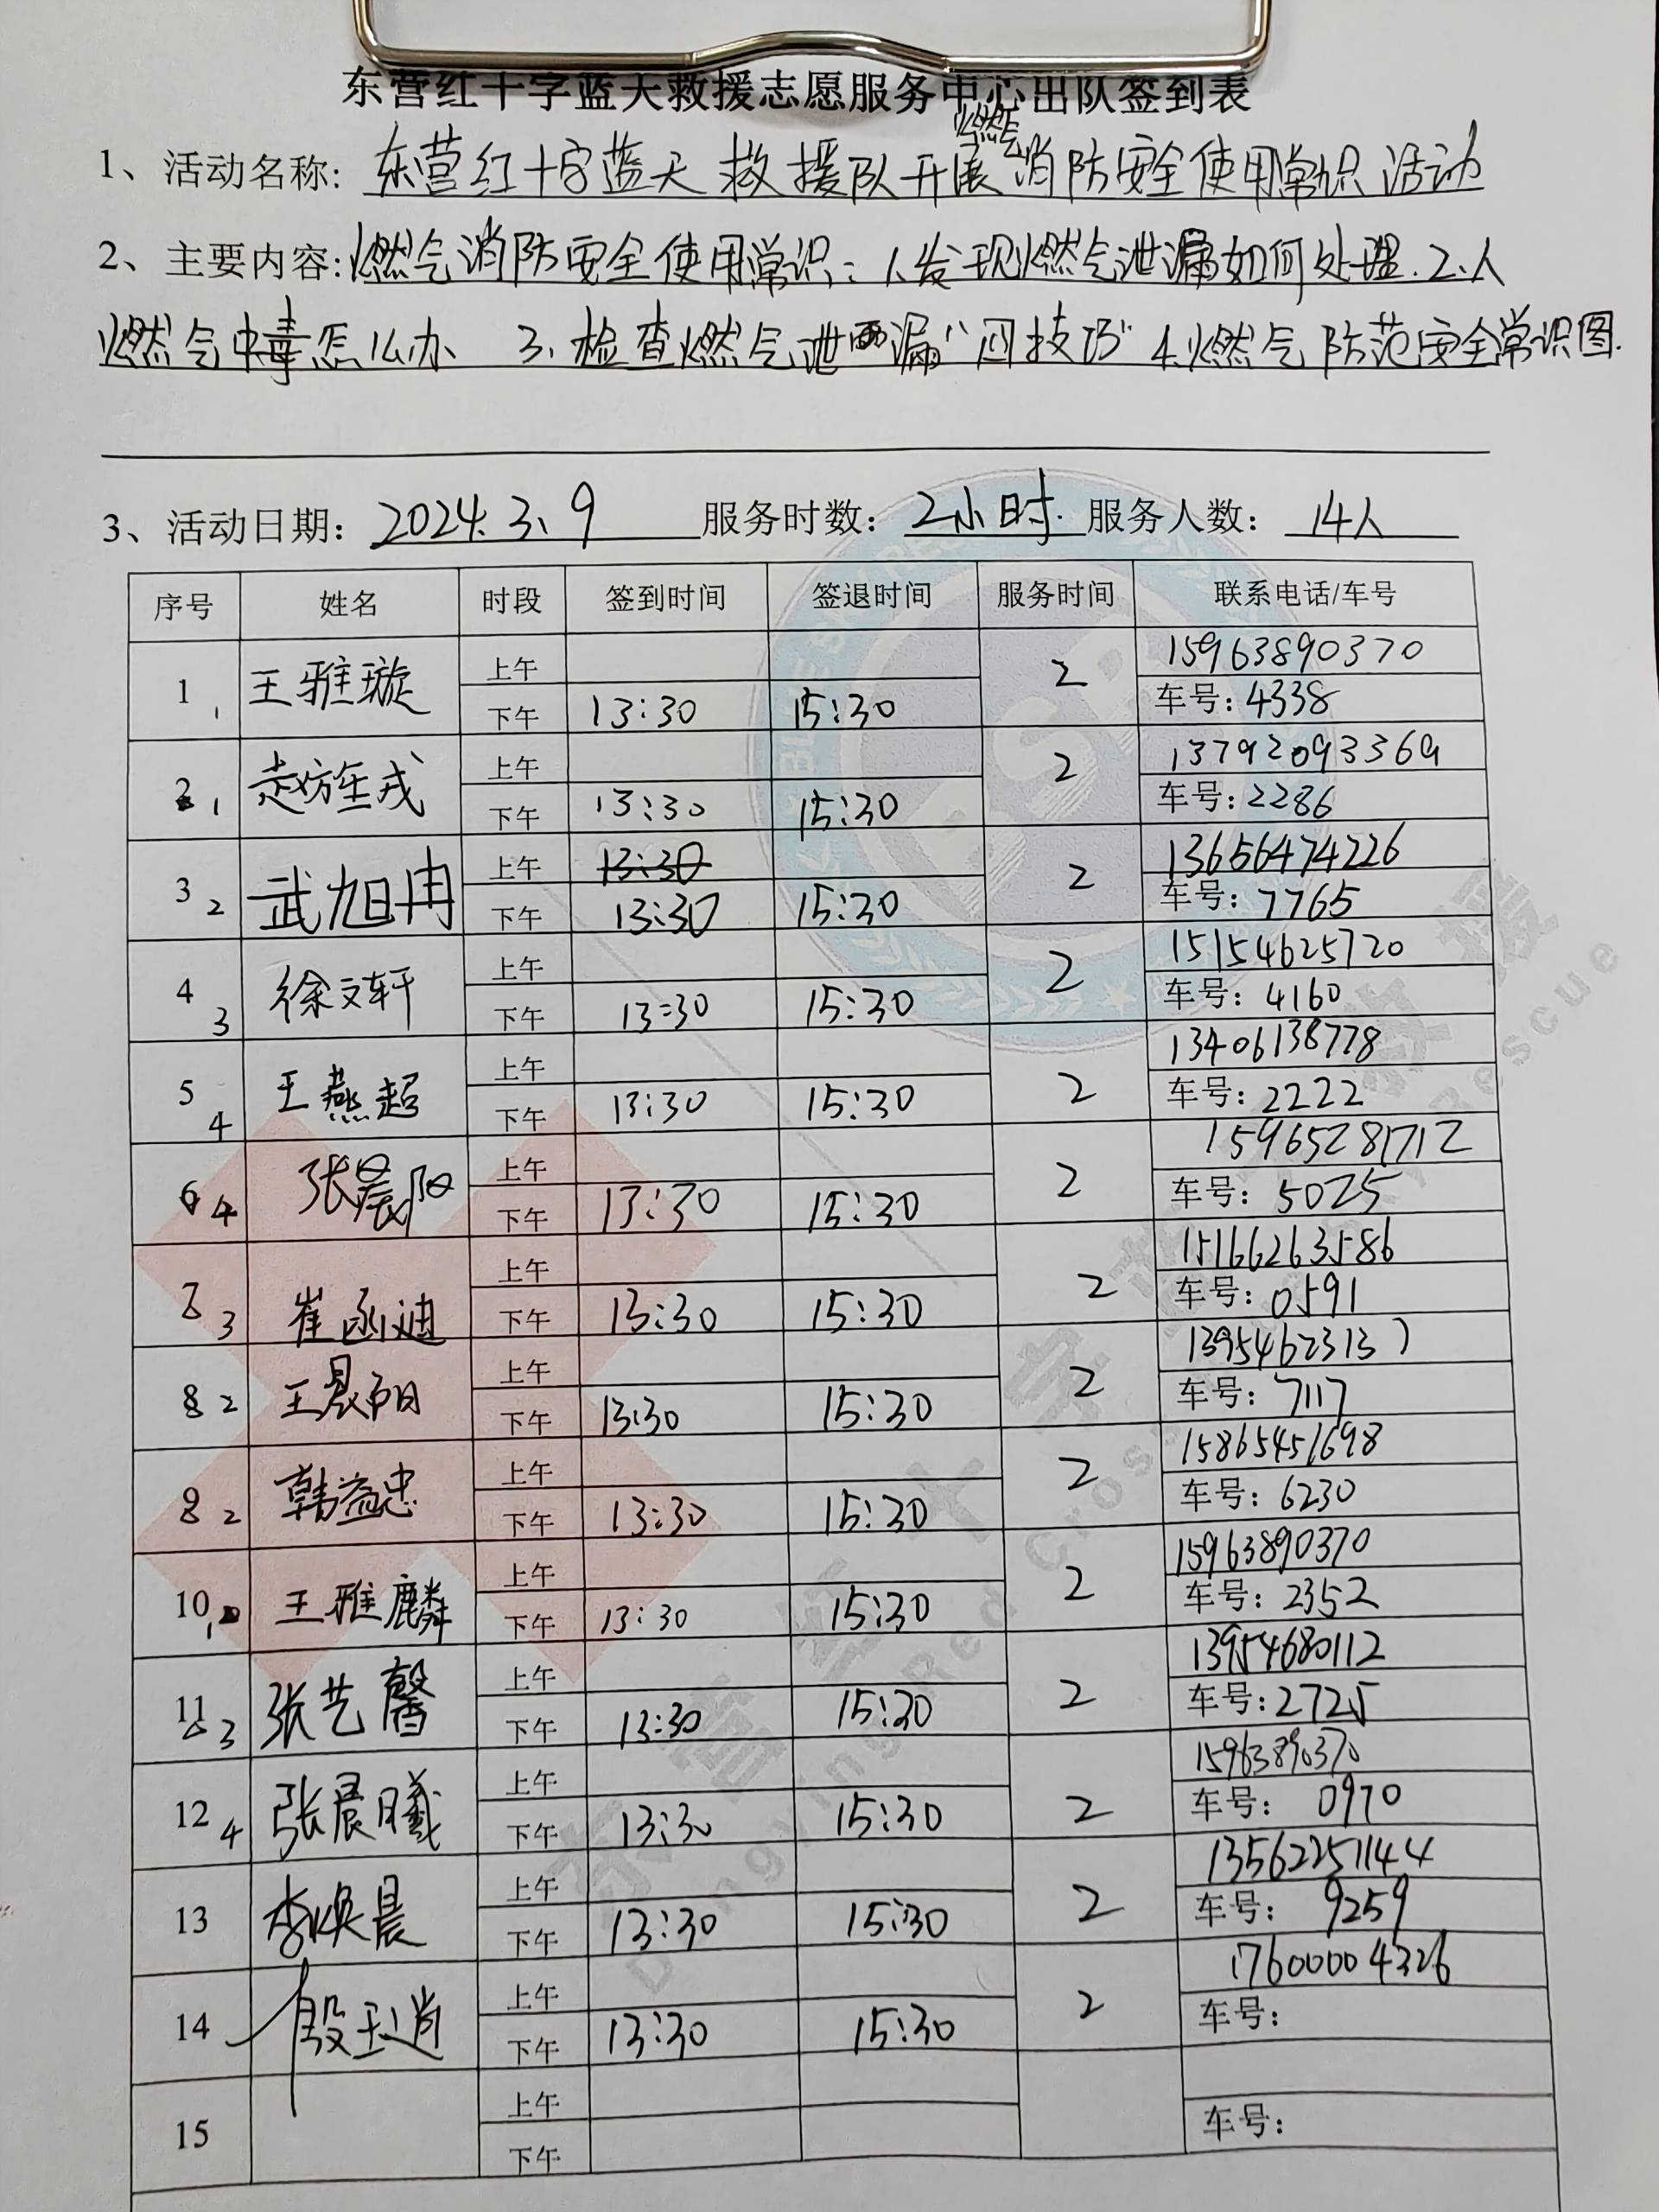 东营红十字蓝天救援志愿服务中心出队签到表
燃气
1、活动名称: 东营红十字蓝天救援队开展消防安全使用常识活动
2、主要内容: 燃气消防安全使用常识: 1.发现燃气泄漏如何处理. 2.人
燃气中毒怎么办 3.检查燃气泄漏“四技巧” 4.燃气防范安全常识图.
3、活动日期: 2024.3.9 服务时数: 2小时. 服务人数: 14人
序号 姓名 时段 签到时间 签退时间 服务时间 联系电话/车号
上午 15963890370
1 1 王雅璇 2
下午 13:30 15:30 车号: 4338
上午 13792093369
2 1 下午 13:30 15:30 2 车号: 2286
上午 13:30 13656474226
3 2 武旭冉 2
下午 13:30 15:30 车号: 7765
上午 15154625720
4 3 徐文轩 2
下午 13:30 15:30 车号: 4160
上午 13406138778
5 4 王燕超 2
下午 13:30 15:30 车号: 2222
上午 15965281712
6 4 张晨阳 2
下午 13:30 15:30 车号: 5025
上午 15166263586
7 3 崔函迪 2
下午 13:30 15:30 车号: 0591
上午 13954623137
8 2 王晨阳 2
下午 13:30 15:30 车号: 7117
上午 15865451698
8 2 韩益忠 2
下午 13:30 15:30 车号: 6230
上午 15963890370
10 1 王雅麟 2
下午 13:30 15:30 车号: 2352
上午 13954680112
11 3 张艺馨 2
下午 13:30 15:30 车号: 2725
上午 15963890370
12 4 张晨曦 2
下午 13:30 15:30 车号: 0970
上午 13562251144
13 李焕晨 2
下午 13:30 15:30 车号: 9259
上午 17600004326
14 殷玉道 2
下午 13:30 15:30 车号:
上午
15
下午 车号:
东营红十字蓝天救援
Dongying Red Cross Blue Sky Rescue